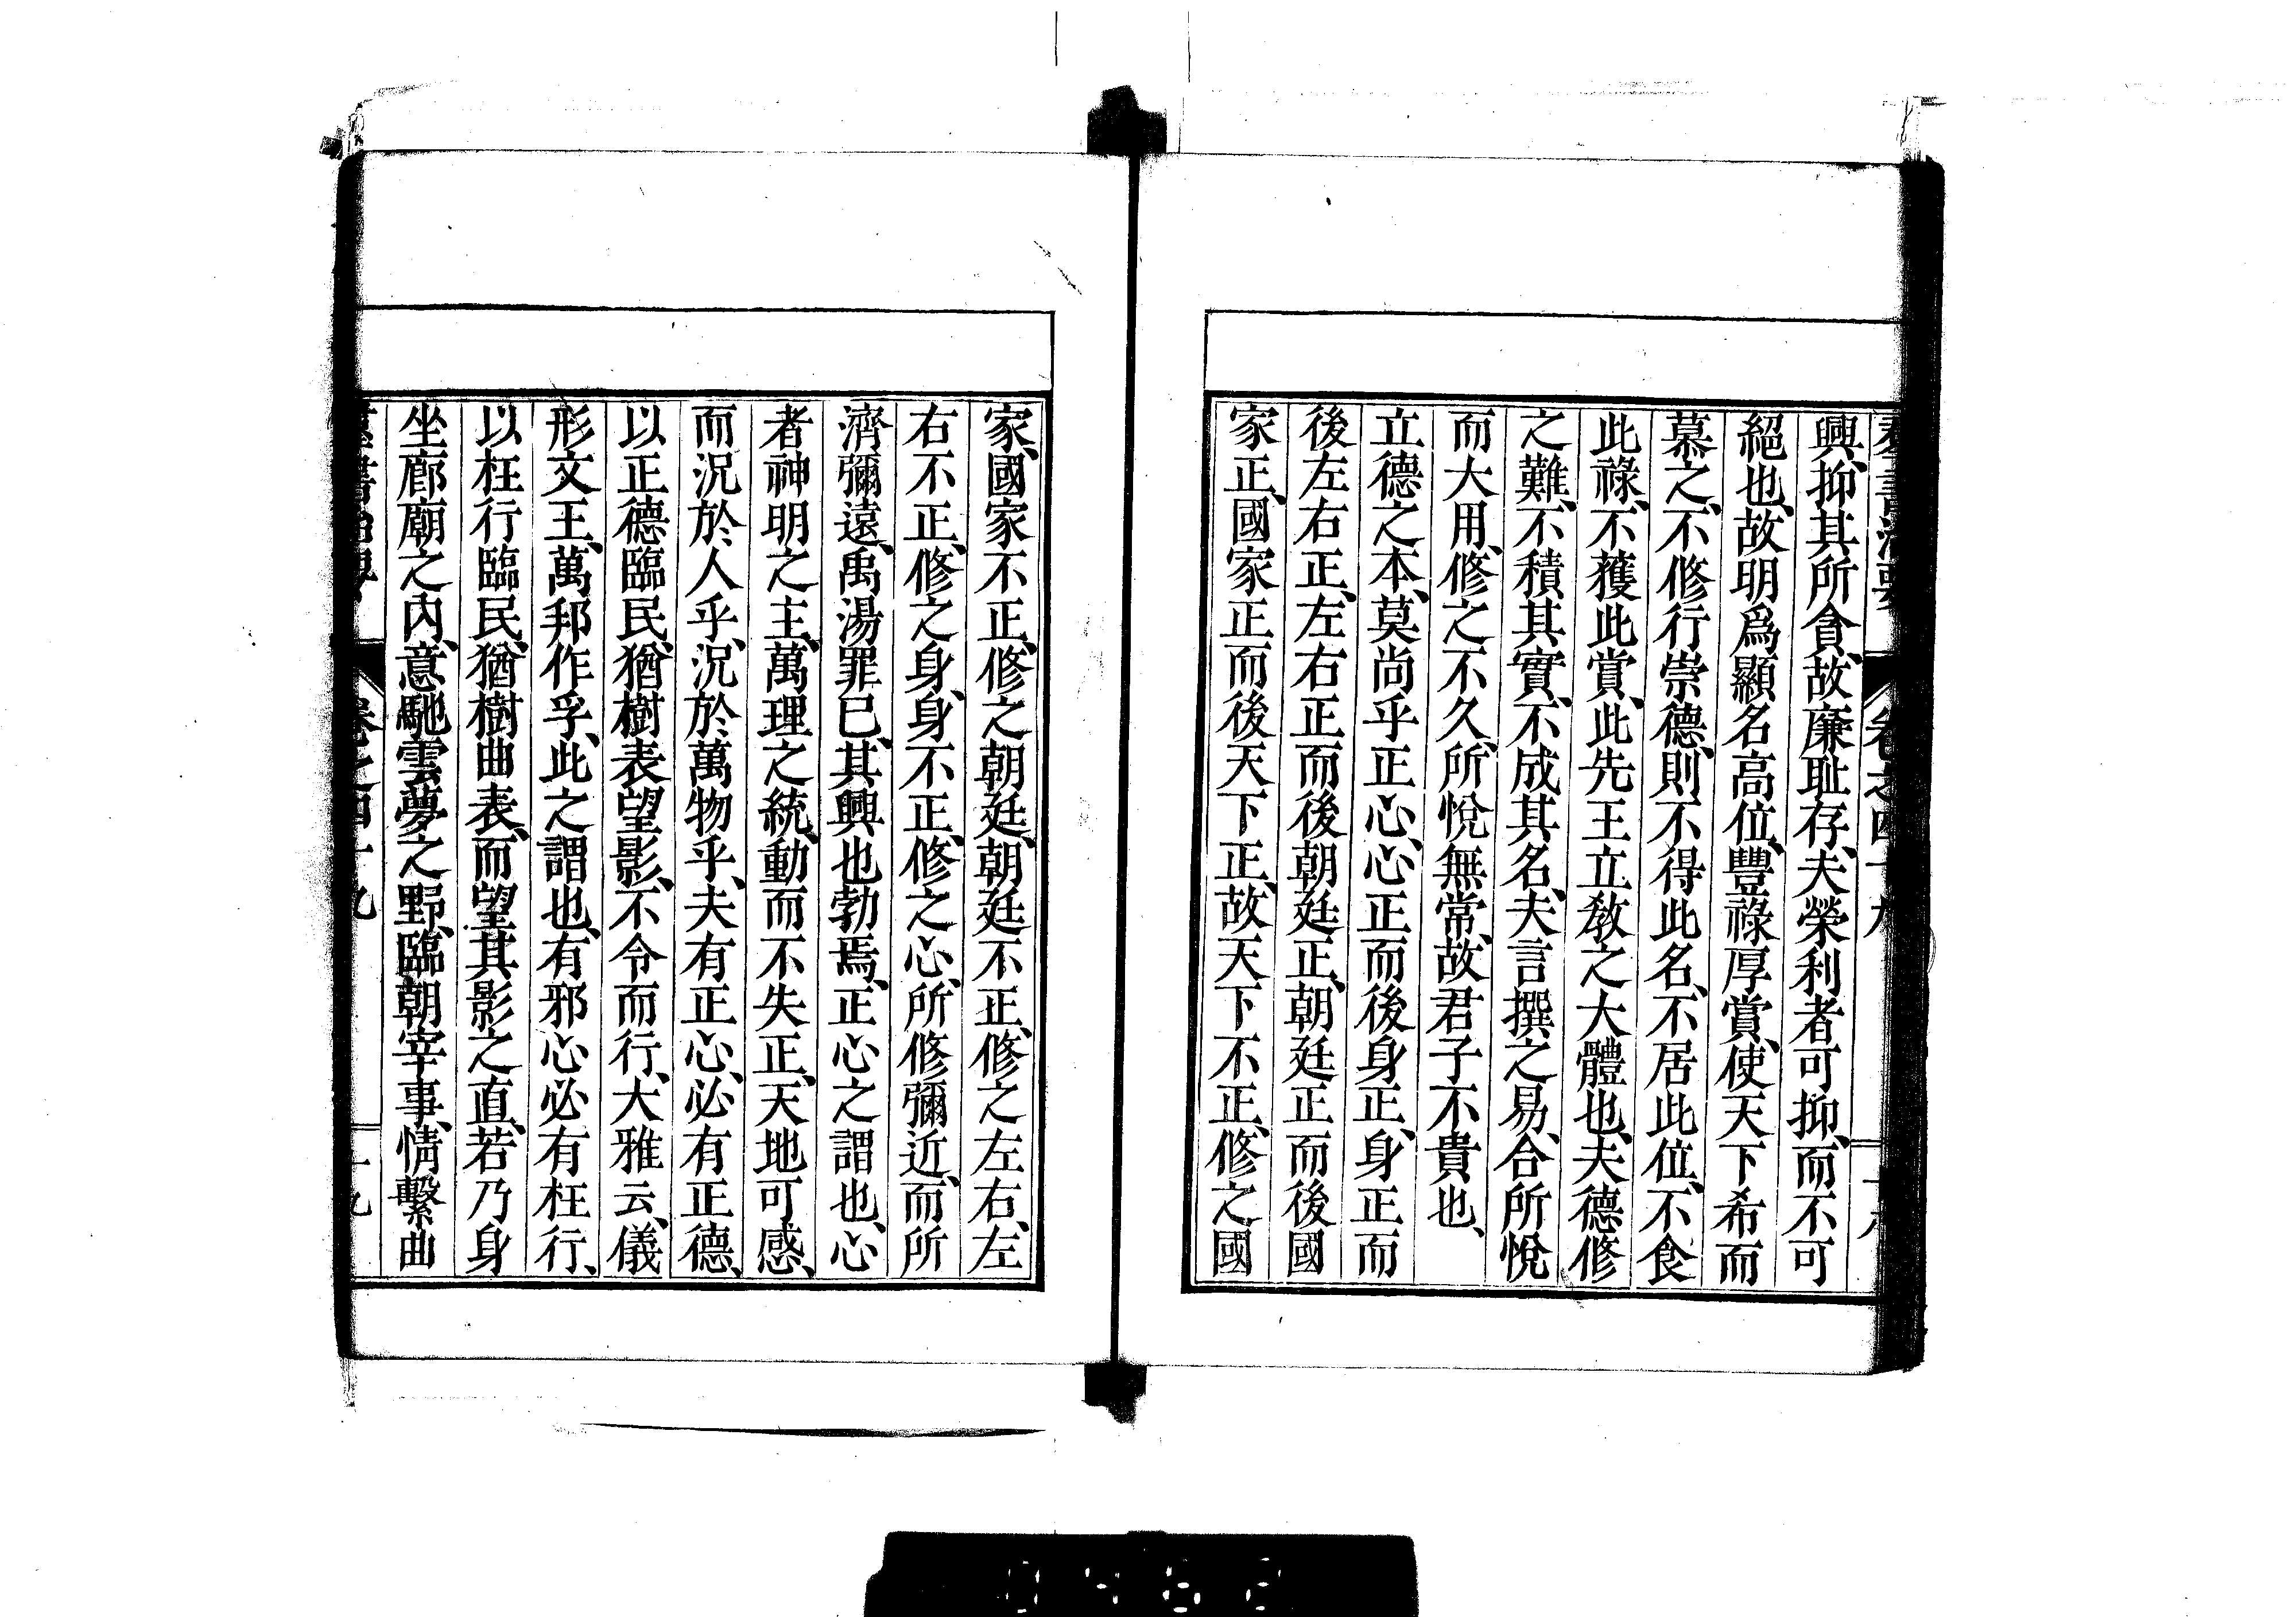 興、抑其所貪、故廉耻存、夫榮利者可抑、而不可
絕也、故明爲顯名高位、豐祿厚賞、使天下希而
慕之、不修行崇德、則不得此名、不居此位、不食
此祿、不獲此賞、此先王立敎之大體也、夫德修
之難、不積其實、不成其名、夫言撰之易、合所悅
而大用、修之不久、所悅無常、故君子不貴也、
立德之本、莫尚乎正心、心正而後身正、身正而
後左右正、左右正而後朝廷正、朝廷正而後國
家正、國家正而後天下正、故天下不正、修之國
家、國家不正、修之朝廷、朝廷不正、修之左右、左
右不正、修之身、身不正、修之心、所修彌近、而所
濟彌遠、禹湯罪已、其興也勃焉、正心之謂也、心
者神明之主、萬理之統、動而不失正、天地可感、
而況於人乎、況於萬物乎、夫有正心、必有正德、
以正德臨民、猶樹表望影、不令而行、大雅云、儀
形文王、萬邦作孚、此之謂也、有邪心必有枉行、
以枉行臨民、猶樹曲表、而望其影之直、若乃身
坐廊廟之內、意馳雲夢之野、臨朝宰事、情繫曲
卷之四十九